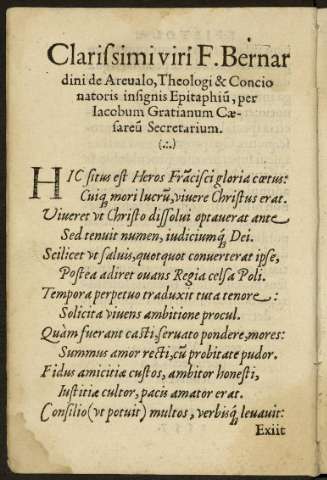 Clarissimi viri F. Bernar
dini de Areualo, Theologi & Concio
natoris insignis Epitaphiū, per
Iacobum Gratianum Cæ-
sareū Secretarium.
(.:.)
HIC situs est Heros Frācisci gloria cœtus:
Cuiq; mori lucrū, viuere Christus erat.
Viueret vt Christo dissolui optauerat ante
Sed tenuit numen, iudiciumq; Dei.
Scilicet vt saluis, quotquot conuerterat ipse,
Postea adiret ouans Regia celsa Poli.
Tempora perpetuo traduxit tuta tenore :
Solicita viuens ambitione procul.
Quàm fuerant casti, seruato pondere, mores:
Summus amor recti, cū probitate pudor.
Fidus amicitiæ custos, ambitor honesti,
Iustitiæ cultor, pacis amator erat.
Consilio (vt potuit) multos, verbisq; leuauit:
Exiit